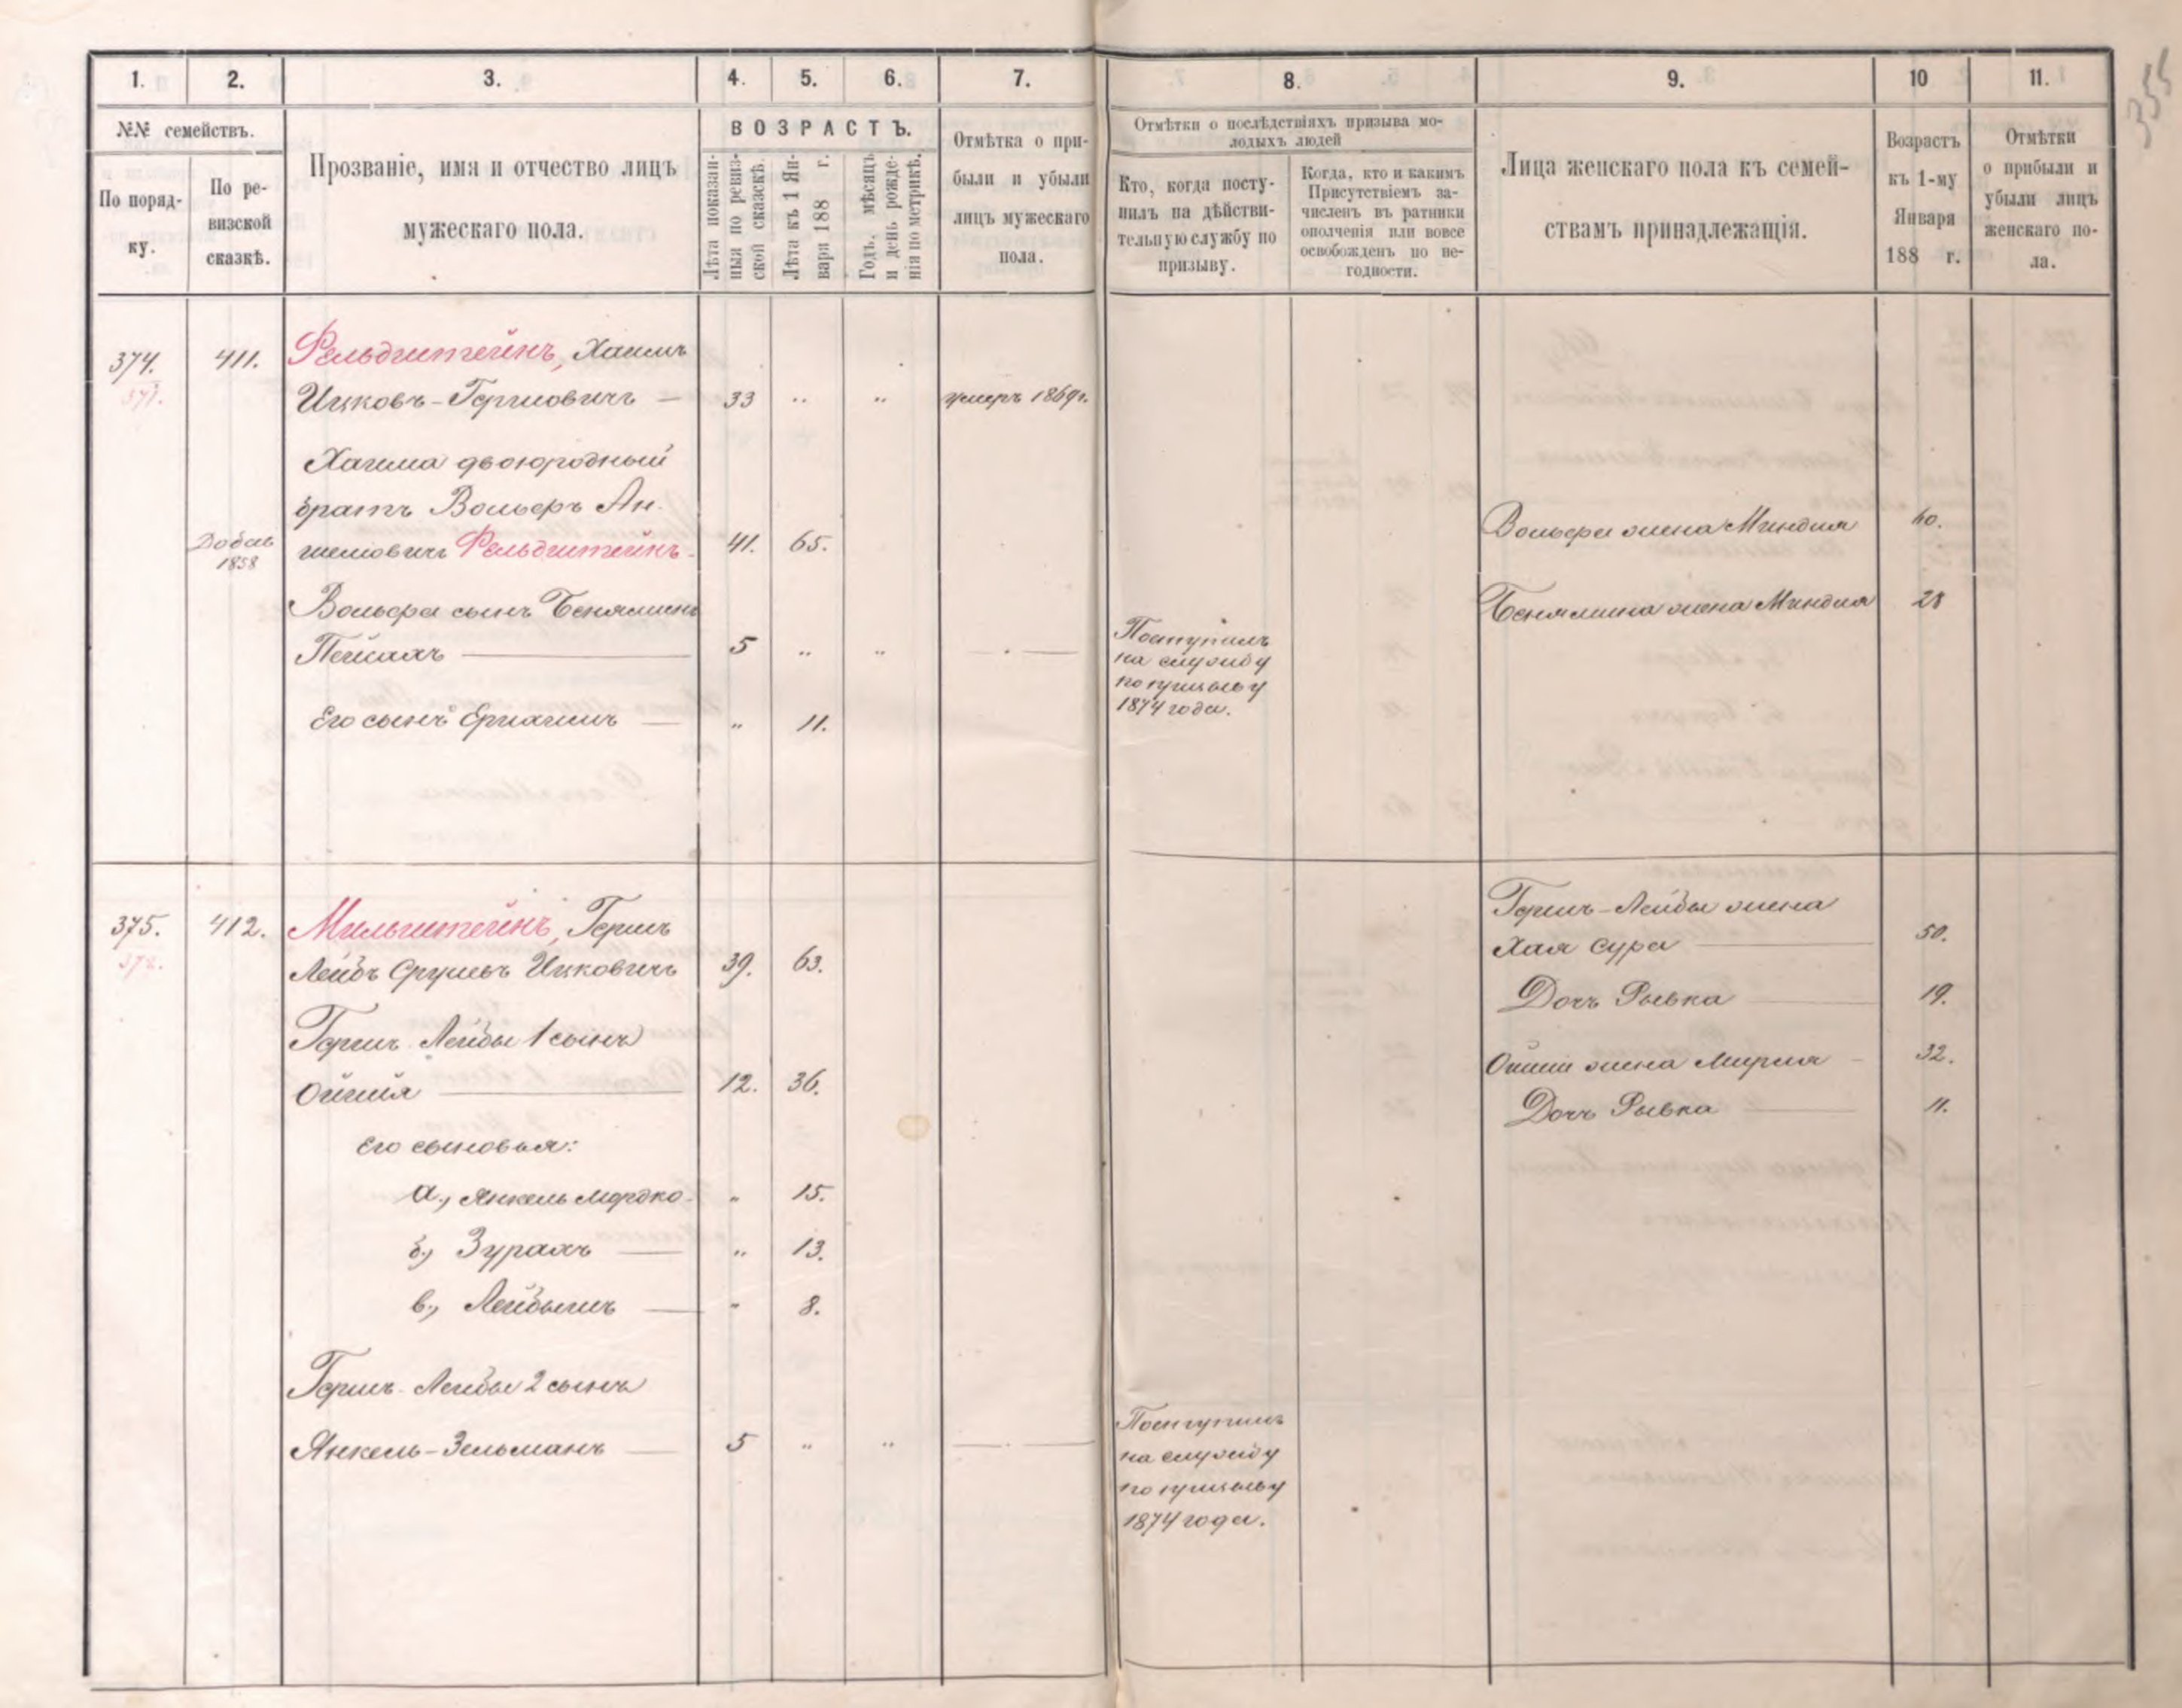 355
1. 2. 3. 4. 5. 6. 7. 8. 9. 10 11.
№№ семействъ.
По поряд-
ку.
По ре-
визской
сказкѣ.
Прозваніе, имя и отчество лицъ
мужескаго пола.
ВОЗРАСТЪ.
Лѣта показан-
ныя по ревиз-
ской сказкѣ.
Лѣта къ 1 Ян-
варя 188 г.
Годъ, мѣсяцъ
и день рожде-
нія по метрикѣ.
Отмѣтка о при-
были и убыли
лицъ мужескаго
пола.
Отмѣтки о послѣдствіяхъ призыва мо-
лодыхъ людей
Кто, когда посту-
пилъ на дѣйстви-
тельную службу по
призыву.
Когда, кто и какимъ
Присутствіемъ за-
численъ въ ратники
ополченія или вовсе
освобожденъ по не-
годности.
Лица женскаго пола къ семей-
ствамъ принадлежащія.
Возрастъ
къ 1-му
Января
188 г.
Отмѣтки
о прибыли и
убыли лицъ
женскаго по-
ла.
374. 411. Фельдштейнъ, Хаимъ
371. Ицковъ-Гершовичъ — 33 " " умеръ 1869г.
Хаима двоюродный
братъ Вольфъ Ан-
Добав
1858
шеловичъ Фельдштейнъ 41. 65.
Вольфа жена Миндля 60.
Вольфа сынъ Беняминъ
Пейсахъ — 5 " " —
Поступилъ
на службу
по призыву
1874 года.
Бенямина жена Миндля 28
Его сынъ Ерхаимъ — " 11.
375. 412. Мильштейнъ, Гершъ
372. Лейбъ Сруловъ Ицковичъ 39. 63.
Гершъ-Лейбы жена
Хая Сура — 50.
Дочь Рывка — 19.
Гершъ Лейбы 1 сынъ
Ойшія — 12. 36.
Ойшіи жена Мирля - 32.
Дочь Рывка — 11.
Его сыновья:
а., Янкель Мордко - " 15.
б., Зурахъ — " 13.
в., Лейбишъ — " 8.
Гершъ-Лейбы 2 сынъ
Янкель-Зельманъ — 5 " " —
Поступилъ
на службу
по призыву
1874 года.